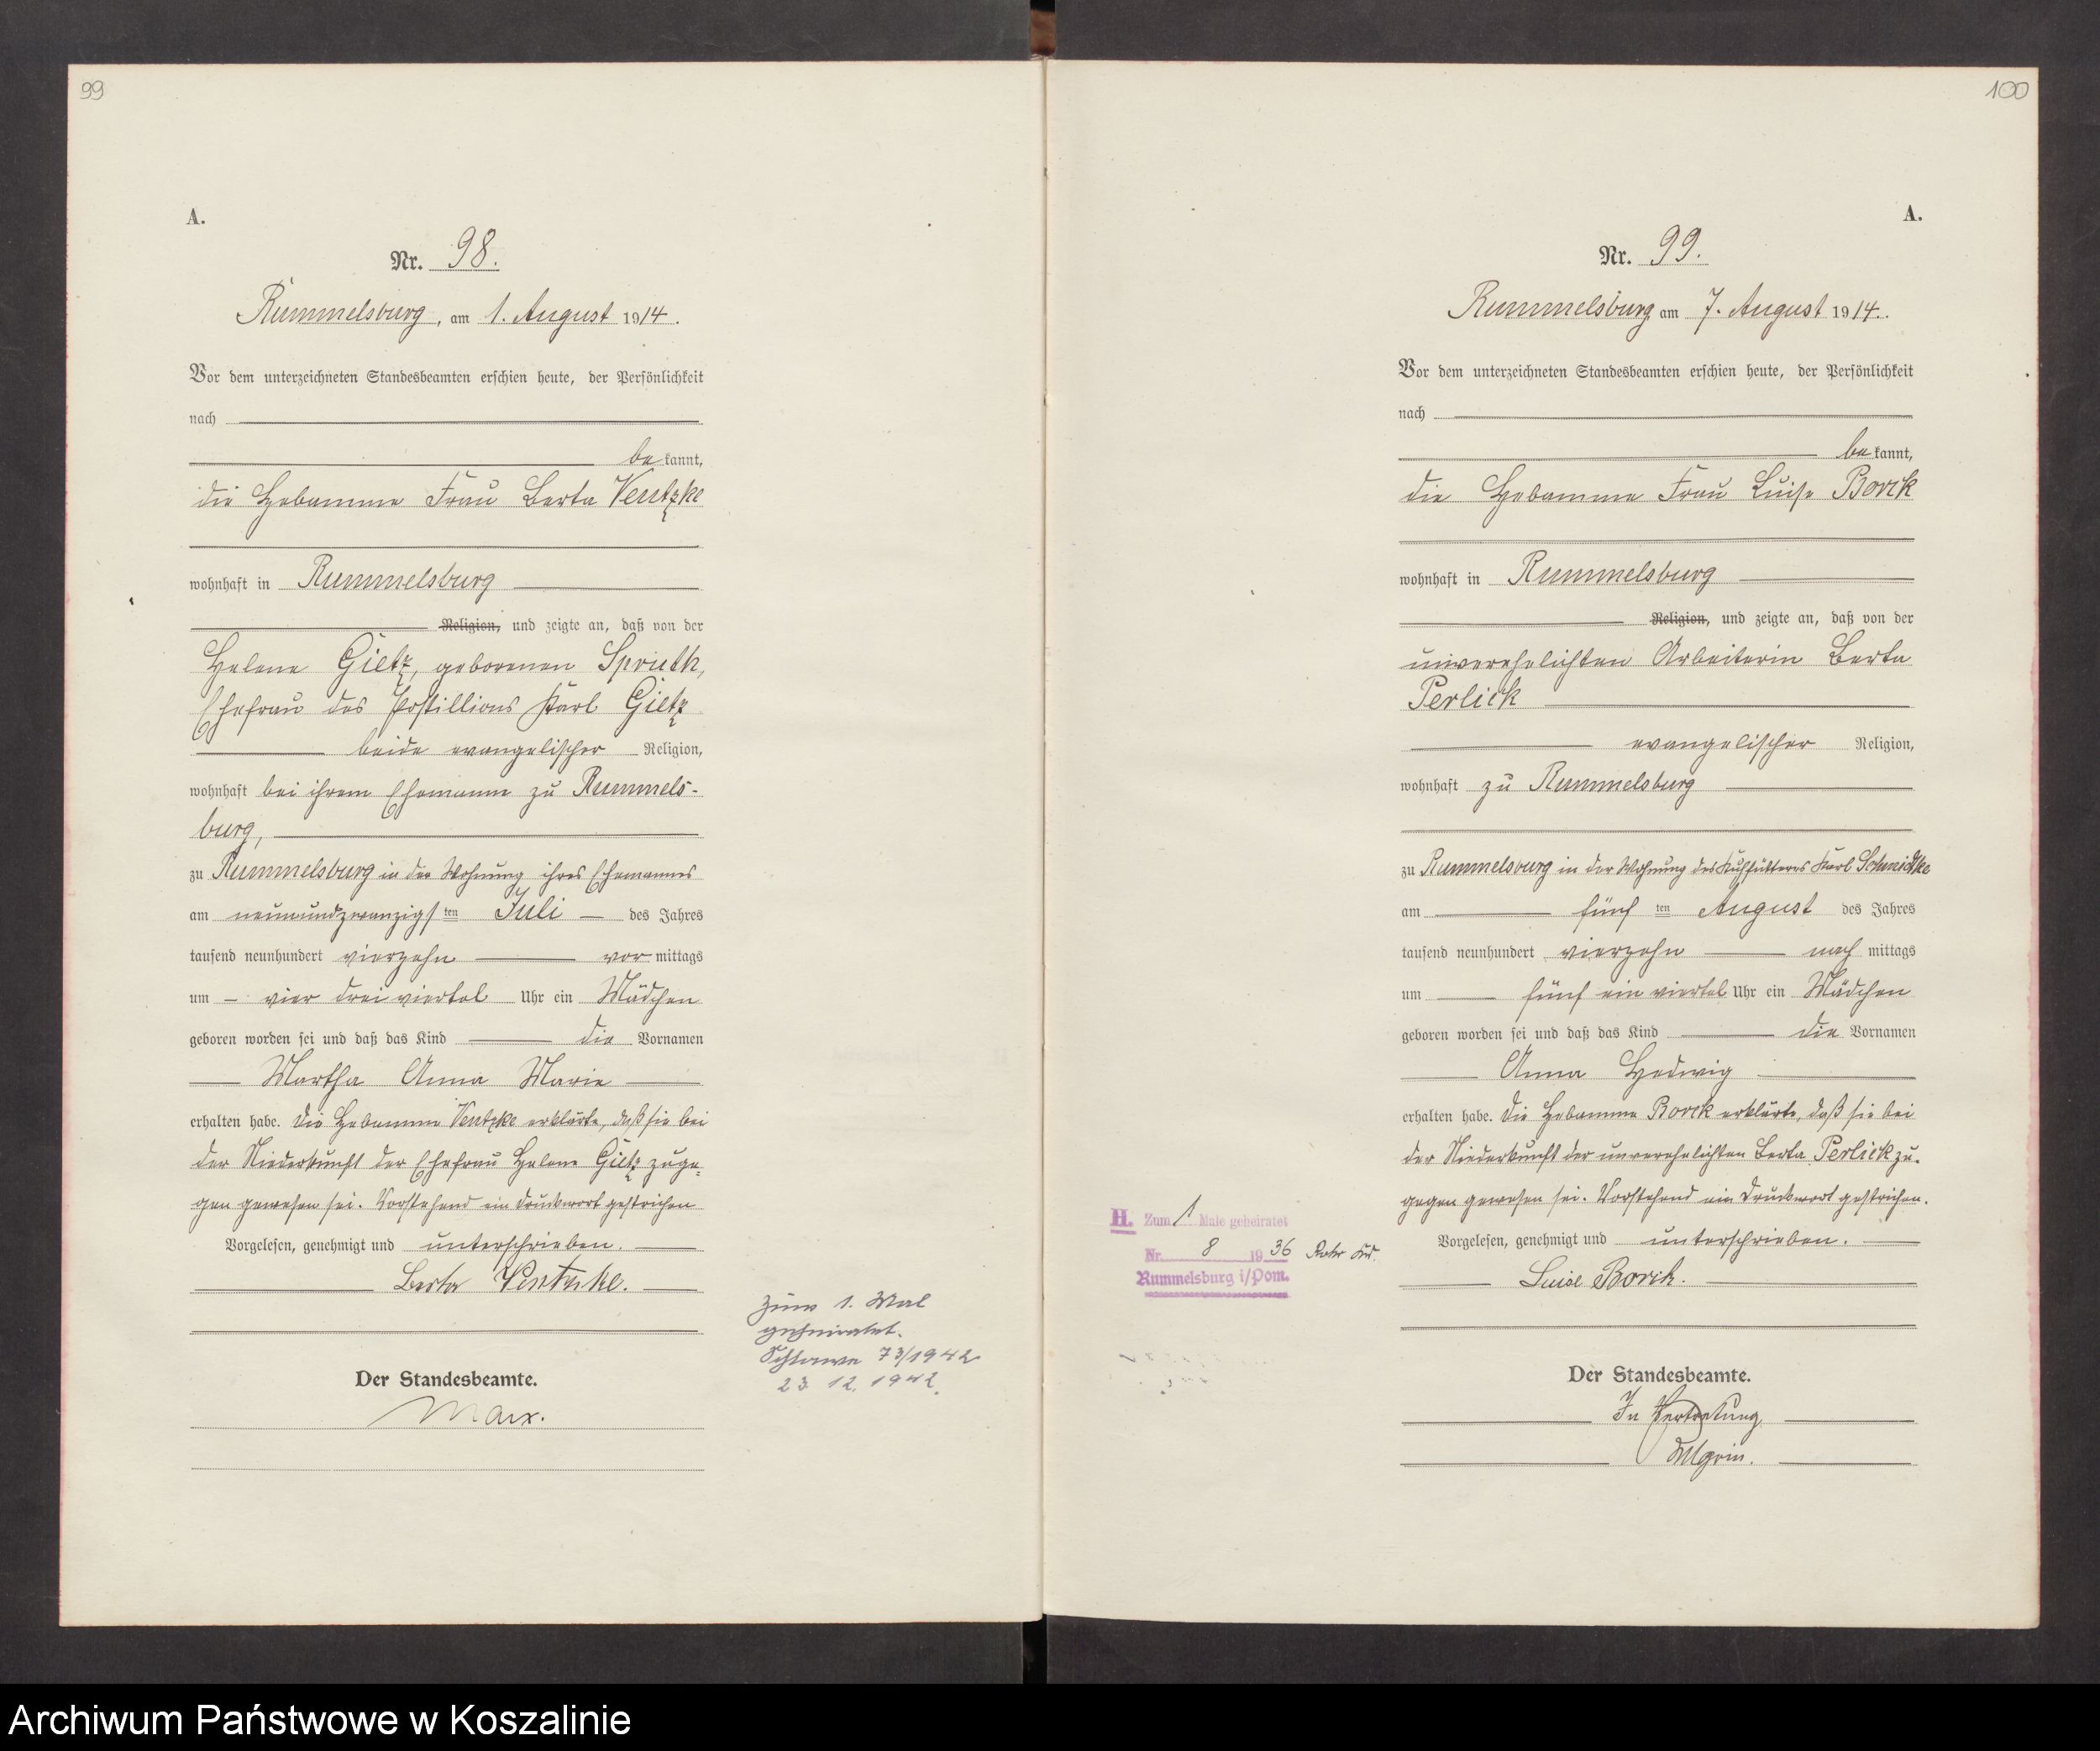 99
A.
Nr. 98.
Rummelsburg, am 1. August 1914.
Vor dem unterzeichneten Standesbeamten erschien heute, der Persönlichkeit
nach
bekannt,
die Hebamme Frau Berta Ventzke
wohnhaft in Rummelsburg
Religion, und zeigte an, daß von der
Helene Gietz, geborenen Spruth,
Ehefrau des Postillions Karl Gietz
beide evangelischer Religion,
wohnhaft bei ihrem Ehemanne zu Rummels-
burg,
zu Rummelsburg in der Wohnung ihres Ehemannes
am neunundzwanzigsten Juli des Jahres
tausend neunhundert vierzehn vormittags
um vier dreiviertel Uhr ein Mädchen
geboren worden sei und daß das Kind die Vornamen
Martha Anna Marie
erhalten habe. Die Hebamme Ventzke erklärte, daß sie bei
der Niederkunft der Ehefrau Helene Gietz zuge-
gen gewesen sei. Vorstehend ein Druckwort gestrichen
Vorgelesen, genehmigt und unterschrieben.
Berta Ventzke.
Der Standesbeamte.
Marx.
Zum 1. Mal
geheiratet.
Schlawe 73/1942
23. 12. 1942.
100
A.
Nr. 99.
Rummelsburg am 7. August 1914.
Vor dem unterzeichneten Standesbeamten erschien heute, der Persönlichkeit
nach
bekannt,
die Hebamme Frau Luise Borck
wohnhaft in Rummelsburg
Religion, und zeigte an, daß von der
unverehelichten Arbeiterin Berta
Perlick
evangelischer Religion,
wohnhaft zu Rummelsburg
zu Rummelsburg in der Wohnung des Kuhfütterers Karl Schmidtke
am fünften August des Jahres
tausend neunhundert vierzehn nachmittags
um fünf ein viertel Uhr ein Mädchen
geboren worden sei und daß das Kind die Vornamen
Anna Hedwig
erhalten habe. Die Hebamme Borck erklärte, daß sie bei
der Niederkunft der unverehelichten Berta Perlick zu-
gegen gewesen sei. Vorstehend ein Druckwort gestrichen.
Vorgelesen, genehmigt und unterschrieben.
Luise Borck.
Der Standesbeamte.
In Vertretung
H. Zum 1 Male geheiratet
Nr. 8 1936
Rummelsburg i/Pom.
Archiwum Państwowe w Koszalinie